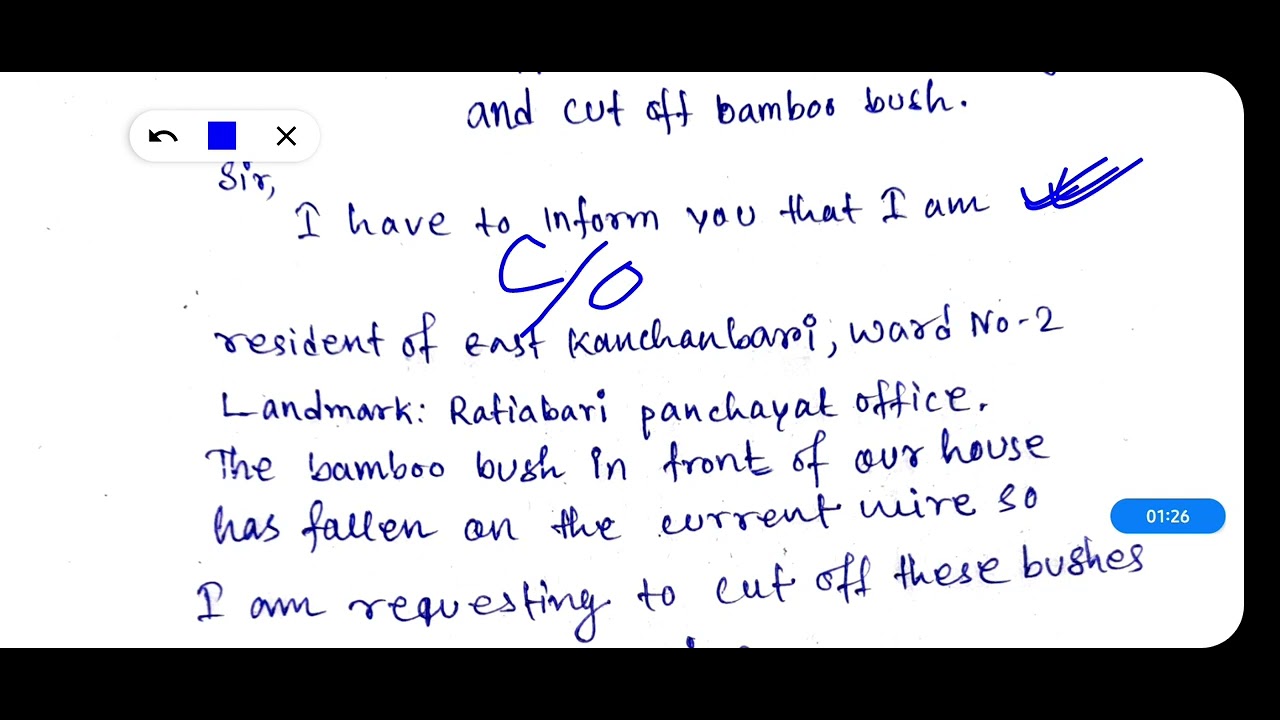 and cut off bamboo bush.
Sir,
I have to inform you that I am
C/O
resident of east Kanchanbari, ward No-2
Landmark: Rafiabari panchayat office.
The bamboo bush in front of our house
has fallen on the current wire so
01:26
I am requesting to cut off these bushes